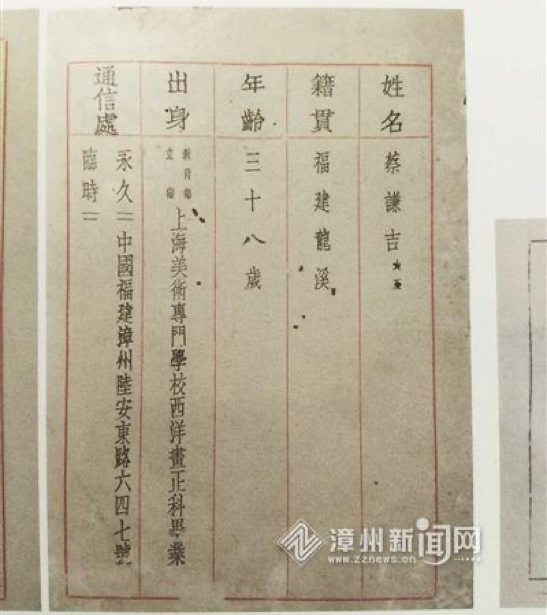 姓名 蔡謙吉
籍貫 福建龍溪
年齡 三十八歲
出身 教育部立案 上海美術專門學校西洋畫正科畢業
通信處 永久＝中國福建漳州陸安東路六四七號
臨時＝
漳州新闻网
www.zznews.cn